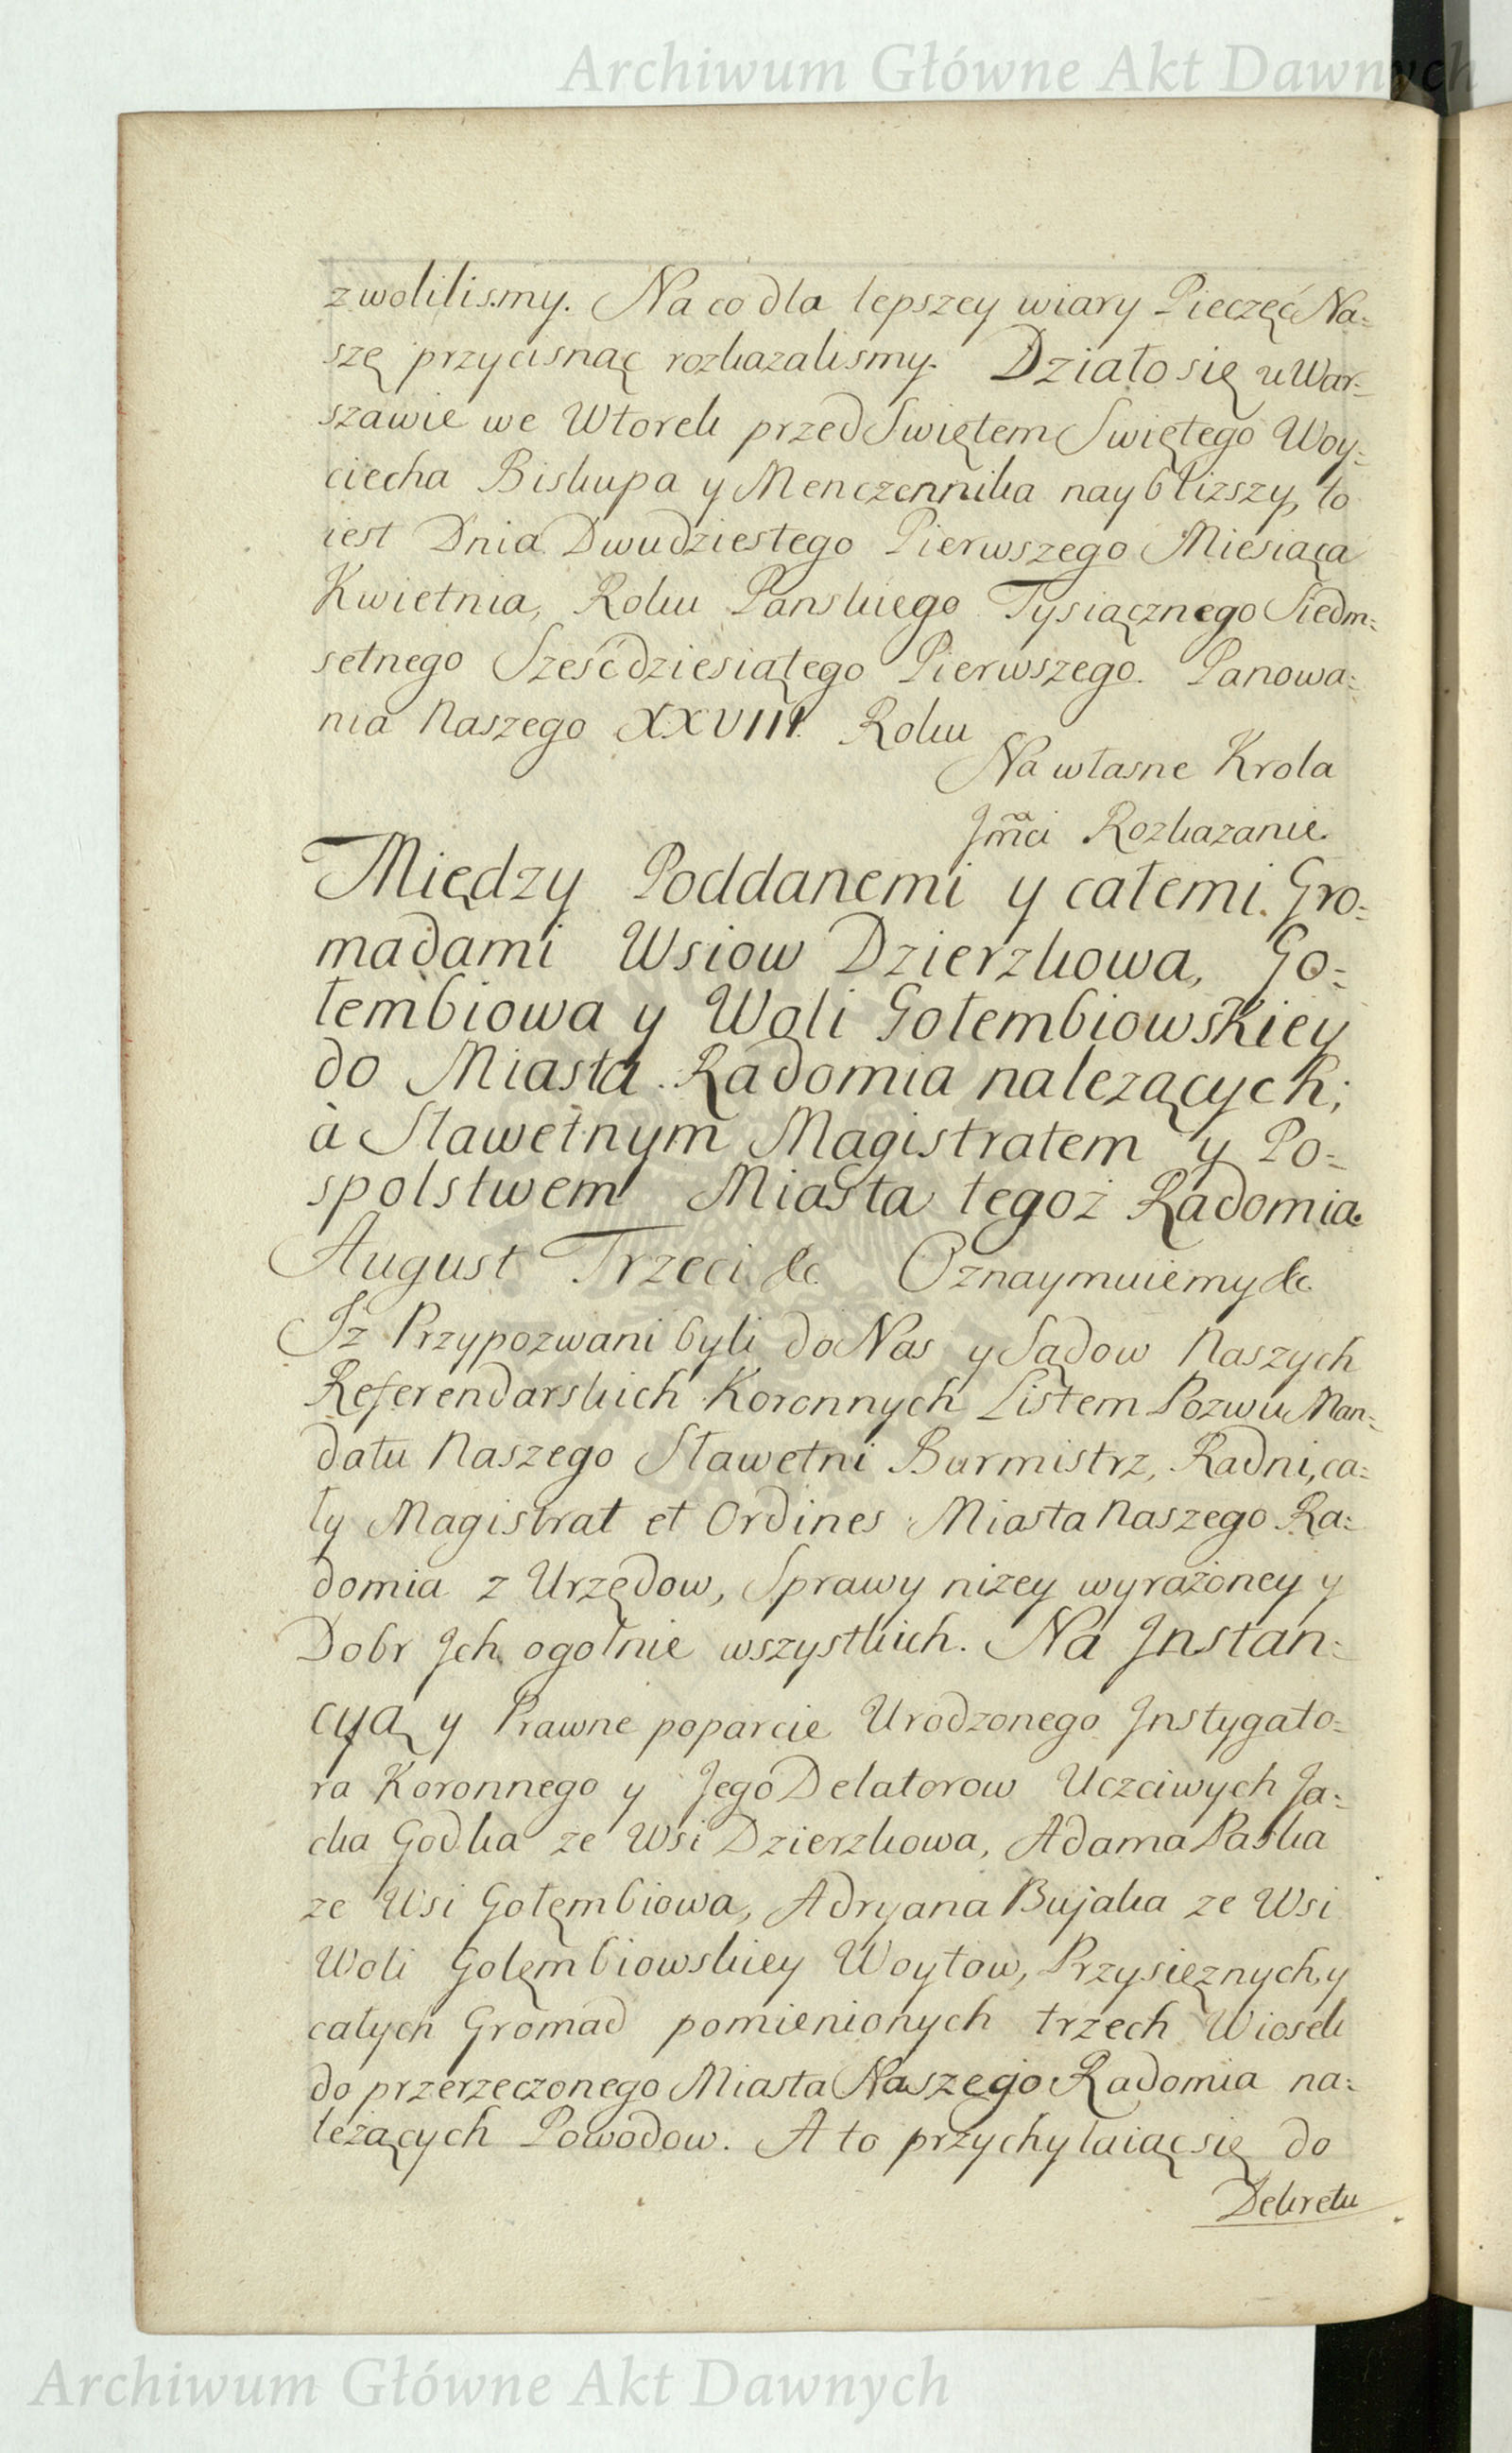 Archiwum Główne Akt Dawnych
zwolilismy. Na co dla lepszey wiary Pieczęć Na=
szę przycisnąć rozkazalismy. Działo się w War=
szawie we Wtorek przed Swiętem Swiętego Woy=
ciecha Biskupa y Menczennika nayblizszy, to
iest Dnia Dwudziestego Pierwszego Miesiąca
Kwietnia, Roku Panskiego Tysiącznego Siedm=
setnego Sześćdziesiątego Pierwszego. Panowa=
nia Naszego XXVIII. Roku
Na własne Krola
Jmci Rozkazanie.
Między Poddanemi y całemi Gro=
madami Wsiow Dzierzkowa, Go=
łembiowa y Woli Gołembiowskiey
do Miasta Radomia nalezących;
à Sławetnym Magistratem y Po=
spolstwem Miasta tegoż Radomia.
August Trzeci &c. Oznaymuiemy &c.
Iz Przypozwani byli do Nas y Sądow Naszych
Referendarskich Koronnych Listem Pozwu Man=
datu Naszego Sławetni Burmistrz, Radni, ca=
ły Magistrat et Ordines Miasta Naszego Ra=
domia z Urzędow, Sprawy nizey wyrażoney y
Dobr Jch ogolnie wszystkich. Na Jnstan=
cyą y Prawne poparcie Urodzonego Jnstygato=
ra Koronnego y Jego Delatorow Uczciwych Ja=
cka Godka ze Wsi Dzierzkowa, Adama Paska
ze Wsi Gołęmbiowa, Adryana Bujaka ze Wsi
Woli Golęmbiowskiey Woytow, Przysięznych, y
całych Gromad pomienionych trzech Wiosek
do przerzeczonego Miasta Naszego Radomia na=
leżących Powodow. A to przychylaiąc się do
Dekretu
Archiwum Główne Akt Dawnych